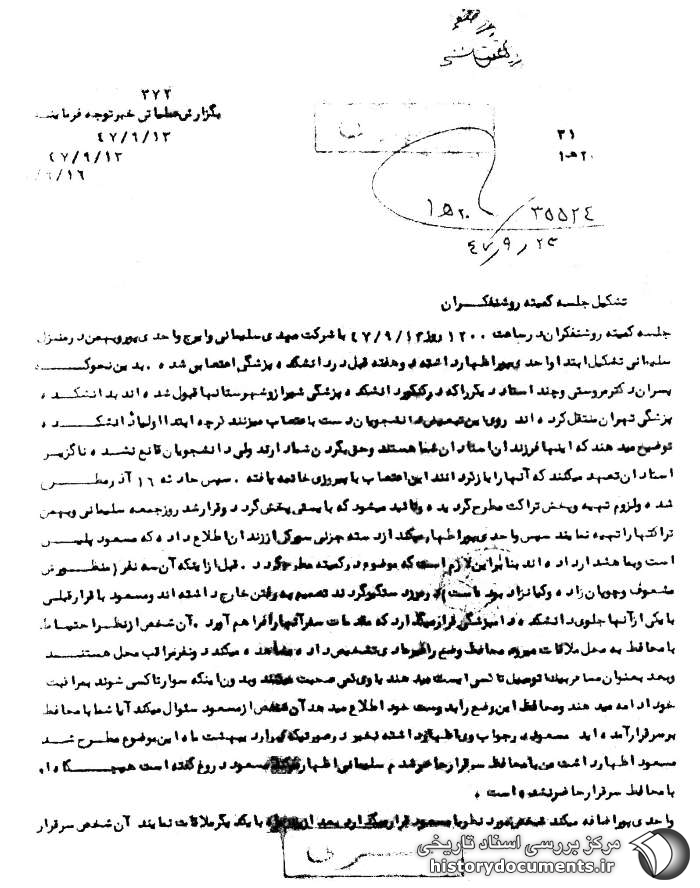 ۳۷۲
بگزارش عملیاتی خبر توجه فرمایند
۴۷/۹/۱۳
۴۷/۹/۱۳
/۹/۱۶
۳۱
۲۰ﻫ۱
۲۰ﻫ۱ / ۳۵۵۲۴
۴۷ر۹ر۲۳
تشکیل جلسه کمیته روشنفکران
جلسه کمیته روشنفکران در ساعت ۱۲۰۰ روز ۴۷/۹/۱۳ با شرکت مهدی سلیمانی و ایرج واحدی پور و بهمن در منزل
سلیمانی تشکیل ابتدا واحدی پور اظهار داشته دو هفته قبل در دانشکده پزشکی اعتصابی شده . بدین نحو که
پسران دکتر مروستی و چند استاد دیگر را که در کنکور دانشکده پزشکی شیراز و شهرستانها قبول شده اند به دانشکده
پزشکی تهران منتقل کرده اند روی این تبعیض دانشجویان دست باعتصاب میزنند گرچه ابتدا اولیاء دانشکده
توضیح میدهند که اینها فرزندان استادان شما هستند و حق بگردن شما دارند ولی دانشجویان قانع نشده ناگزیر
استادان تعهد میکنند که آنها را باز گردانند این اعتصاب با پیروزی خاتمه یافته . سپس حادثه ۱۶ آذر مطرح
شده و لزوم تهیه و پخش تراکت مطرح گردیده و تائید میشود که بایستی پخش گردد و قرار شد روز جمعه سلیمانی و بهمن
تراکتها را تهیه نمایند سپس واحدی پور اظهار میکند از دسته جزنی سورکی از زندان اطلاع داده که مسعود پلیس
است و بما هشدار داده اند بنابراین لازم است که موضوع در کمیته مطرح گردد . قبل از اینکه آن سه نفر ( منظورش
مشعوف و چوپان زاده و کیانزاد بوده است) در مرز دستگیر گردند تصمیم به رفتن خارج داشته اند و مسعود با قرار قبلی
با یکی از آنها جلوی دانشکده دامپزشکی قرار میگذارد که مقدمات سفر آنها را فراهم آورد . آن شخص از نظر احتیاط
با محافظ به محل ملاقات میرود محافظ وضع را غیر عادی تشخیص داده مشاهده میکند دو نفر مراقب محل هستند
و بعد بعنوان مسافر بیک اتومبیل تاکسی ایست میدهند با وی نمی صحبت میکنند و بدون اینکه سوار تاکسی شوند بمراقبت
خود ادامه میدهند و محافظ این وضع را بدوست خود اطلاع میدهد آن شخص از مسعود سئوال میکند آیا شما با محافظ
بر سر قرار آمده اید مسعود در جواب وی اظهار داشته نخیر در صورتیکه در اردیبهشت ماه این موضوع مطرح شد
مسعود اظهار داشت من با محافظ سر قرار حاضر شدم سلیمانی اظهار میکند مسعود دروغ گفته است هیچگاه او
با محافظ سر قرار حاضر نشده است .
واحدی پور اضافه میکند شخص مورد نظر با مسعود قرار میگذارد بعد از با یکدیگر ملاقات نمایند آن شخص سر قرار
سری
مرکز بررسی اسناد تاریخی
historydocuments.ir